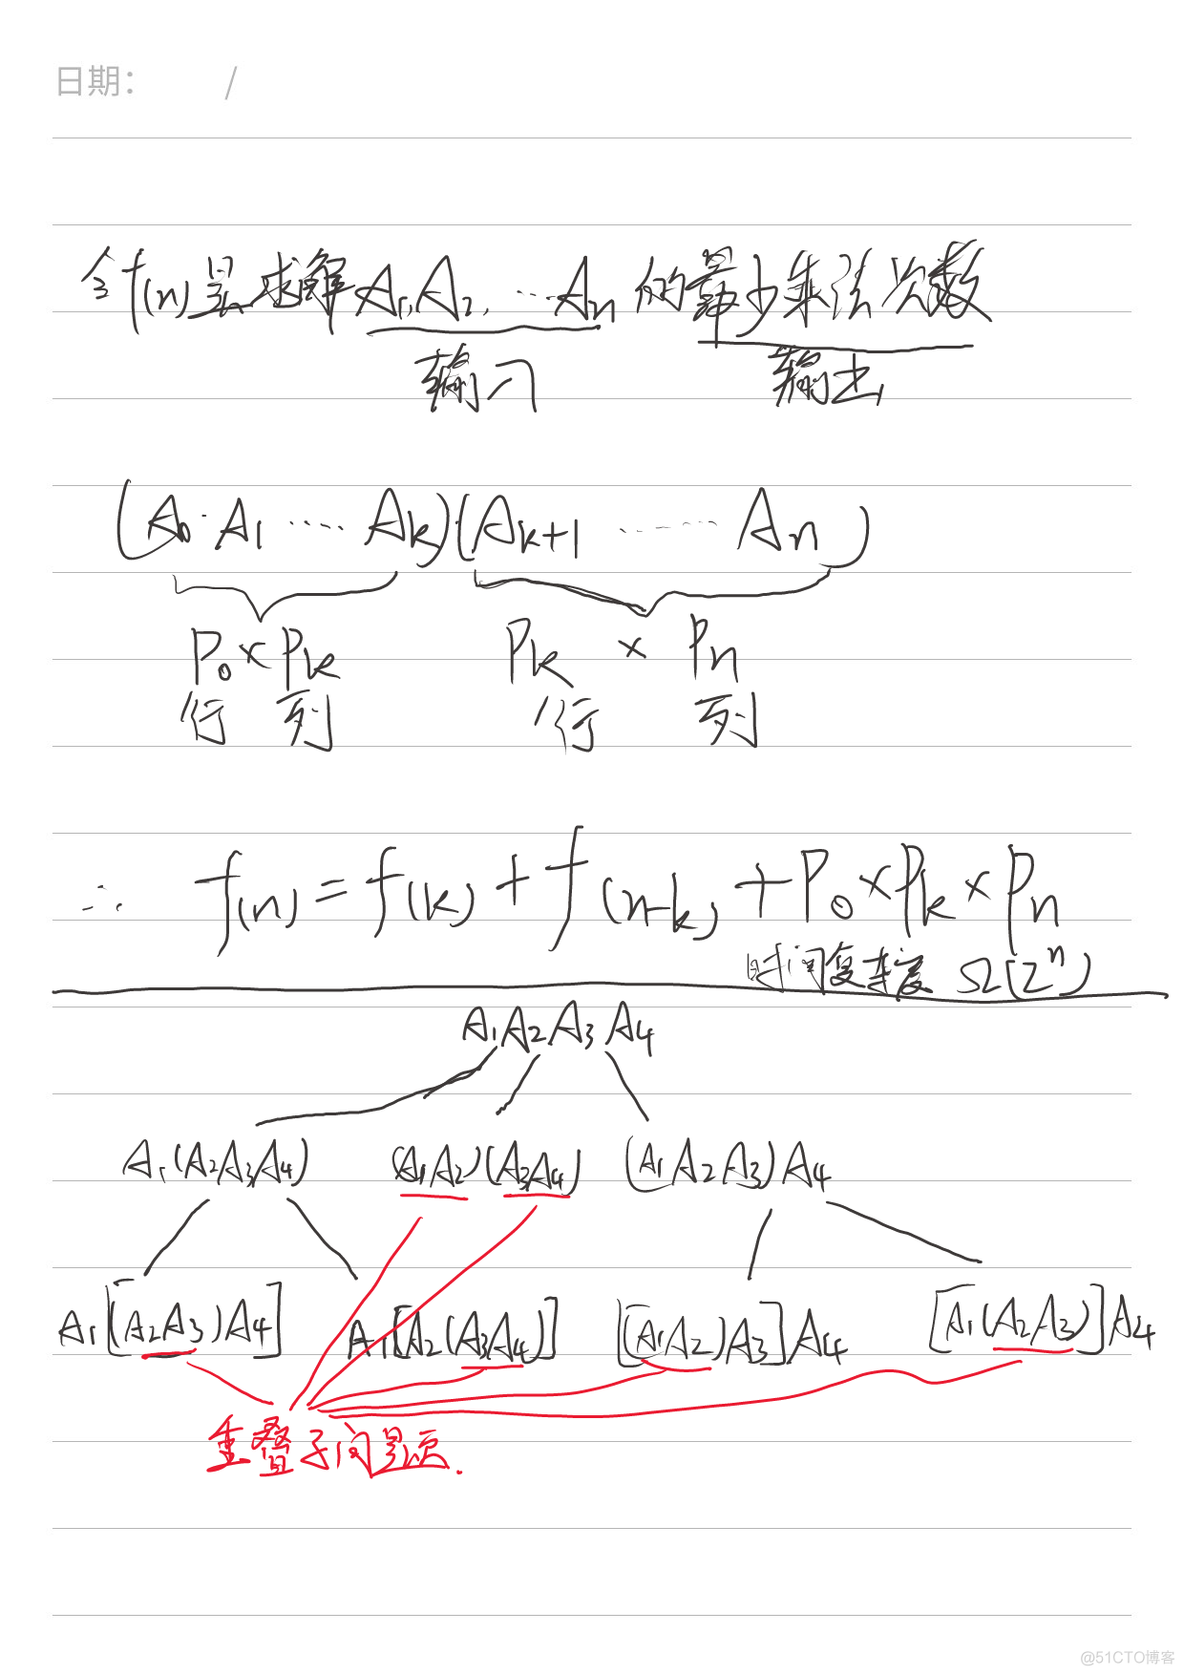 日期: /
令f(n)是求解A1,A2,…An的最少乘法次数
输入 输出
(A0·A1……Ak)(Ak+1……An)
P0×Pk Pk×Pn
行 列 行 列
∴ f(n)=f(k)+f(n-k)+P0×Pk×Pn
时间复杂度 Ω(2^n)
A1A2A3A4
A1(A2A3A4) (A1A2)(A3A4) (A1A2A3)A4
A1[(A2A3)A4] A1[A2(A3A4)] [(A1A2)A3]A4 [A1(A2A3)]A4
重叠子问题.
@51CTO博客